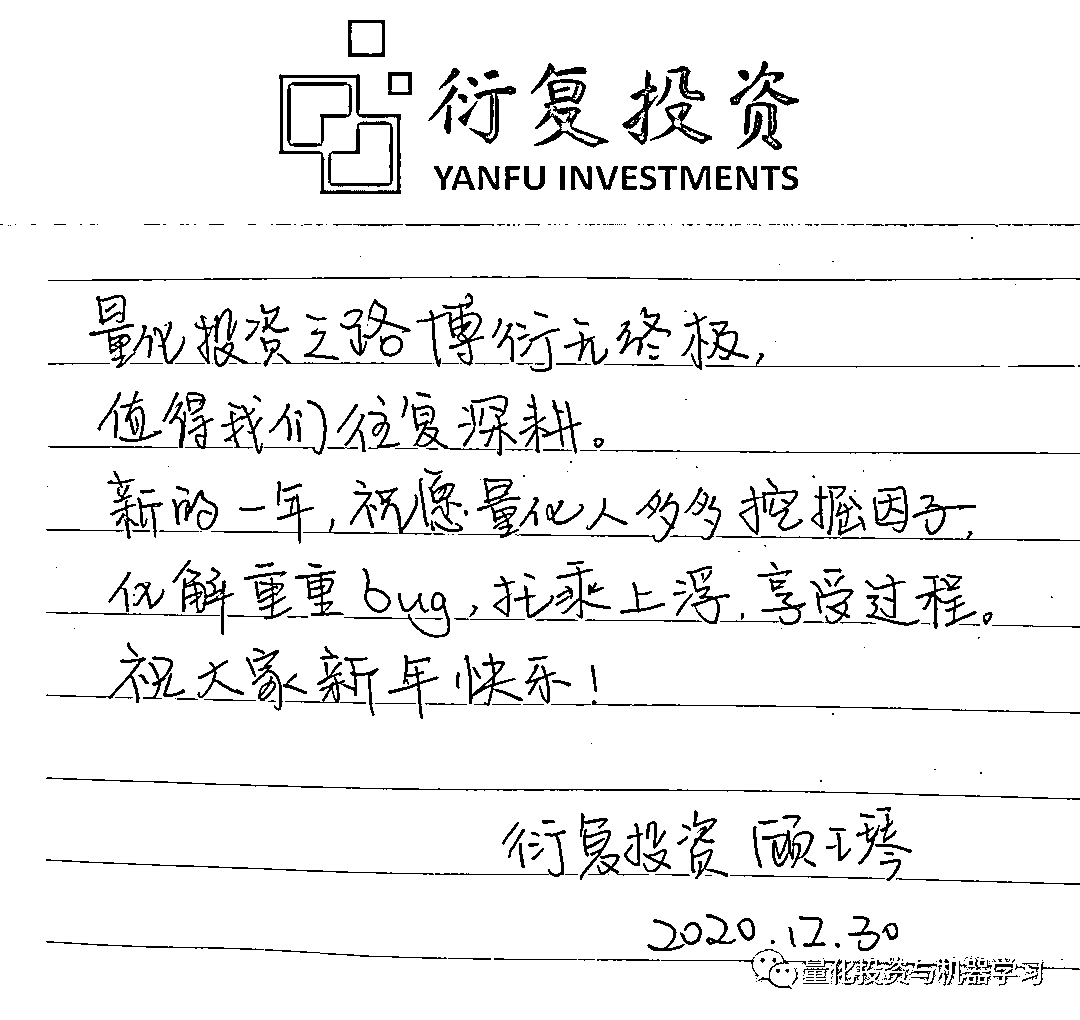 衍复投资
YANFU INVESTMENTS
量化投资之路博衍无终极,
值得我们往复深耕。
新的一年,祝愿量化人多多挖掘因子,
化解重重bug,托乘上浮,享受过程。
祝大家新年快乐!
衍复投资 顾王琴
2020.12.30
量化投资与机器学习